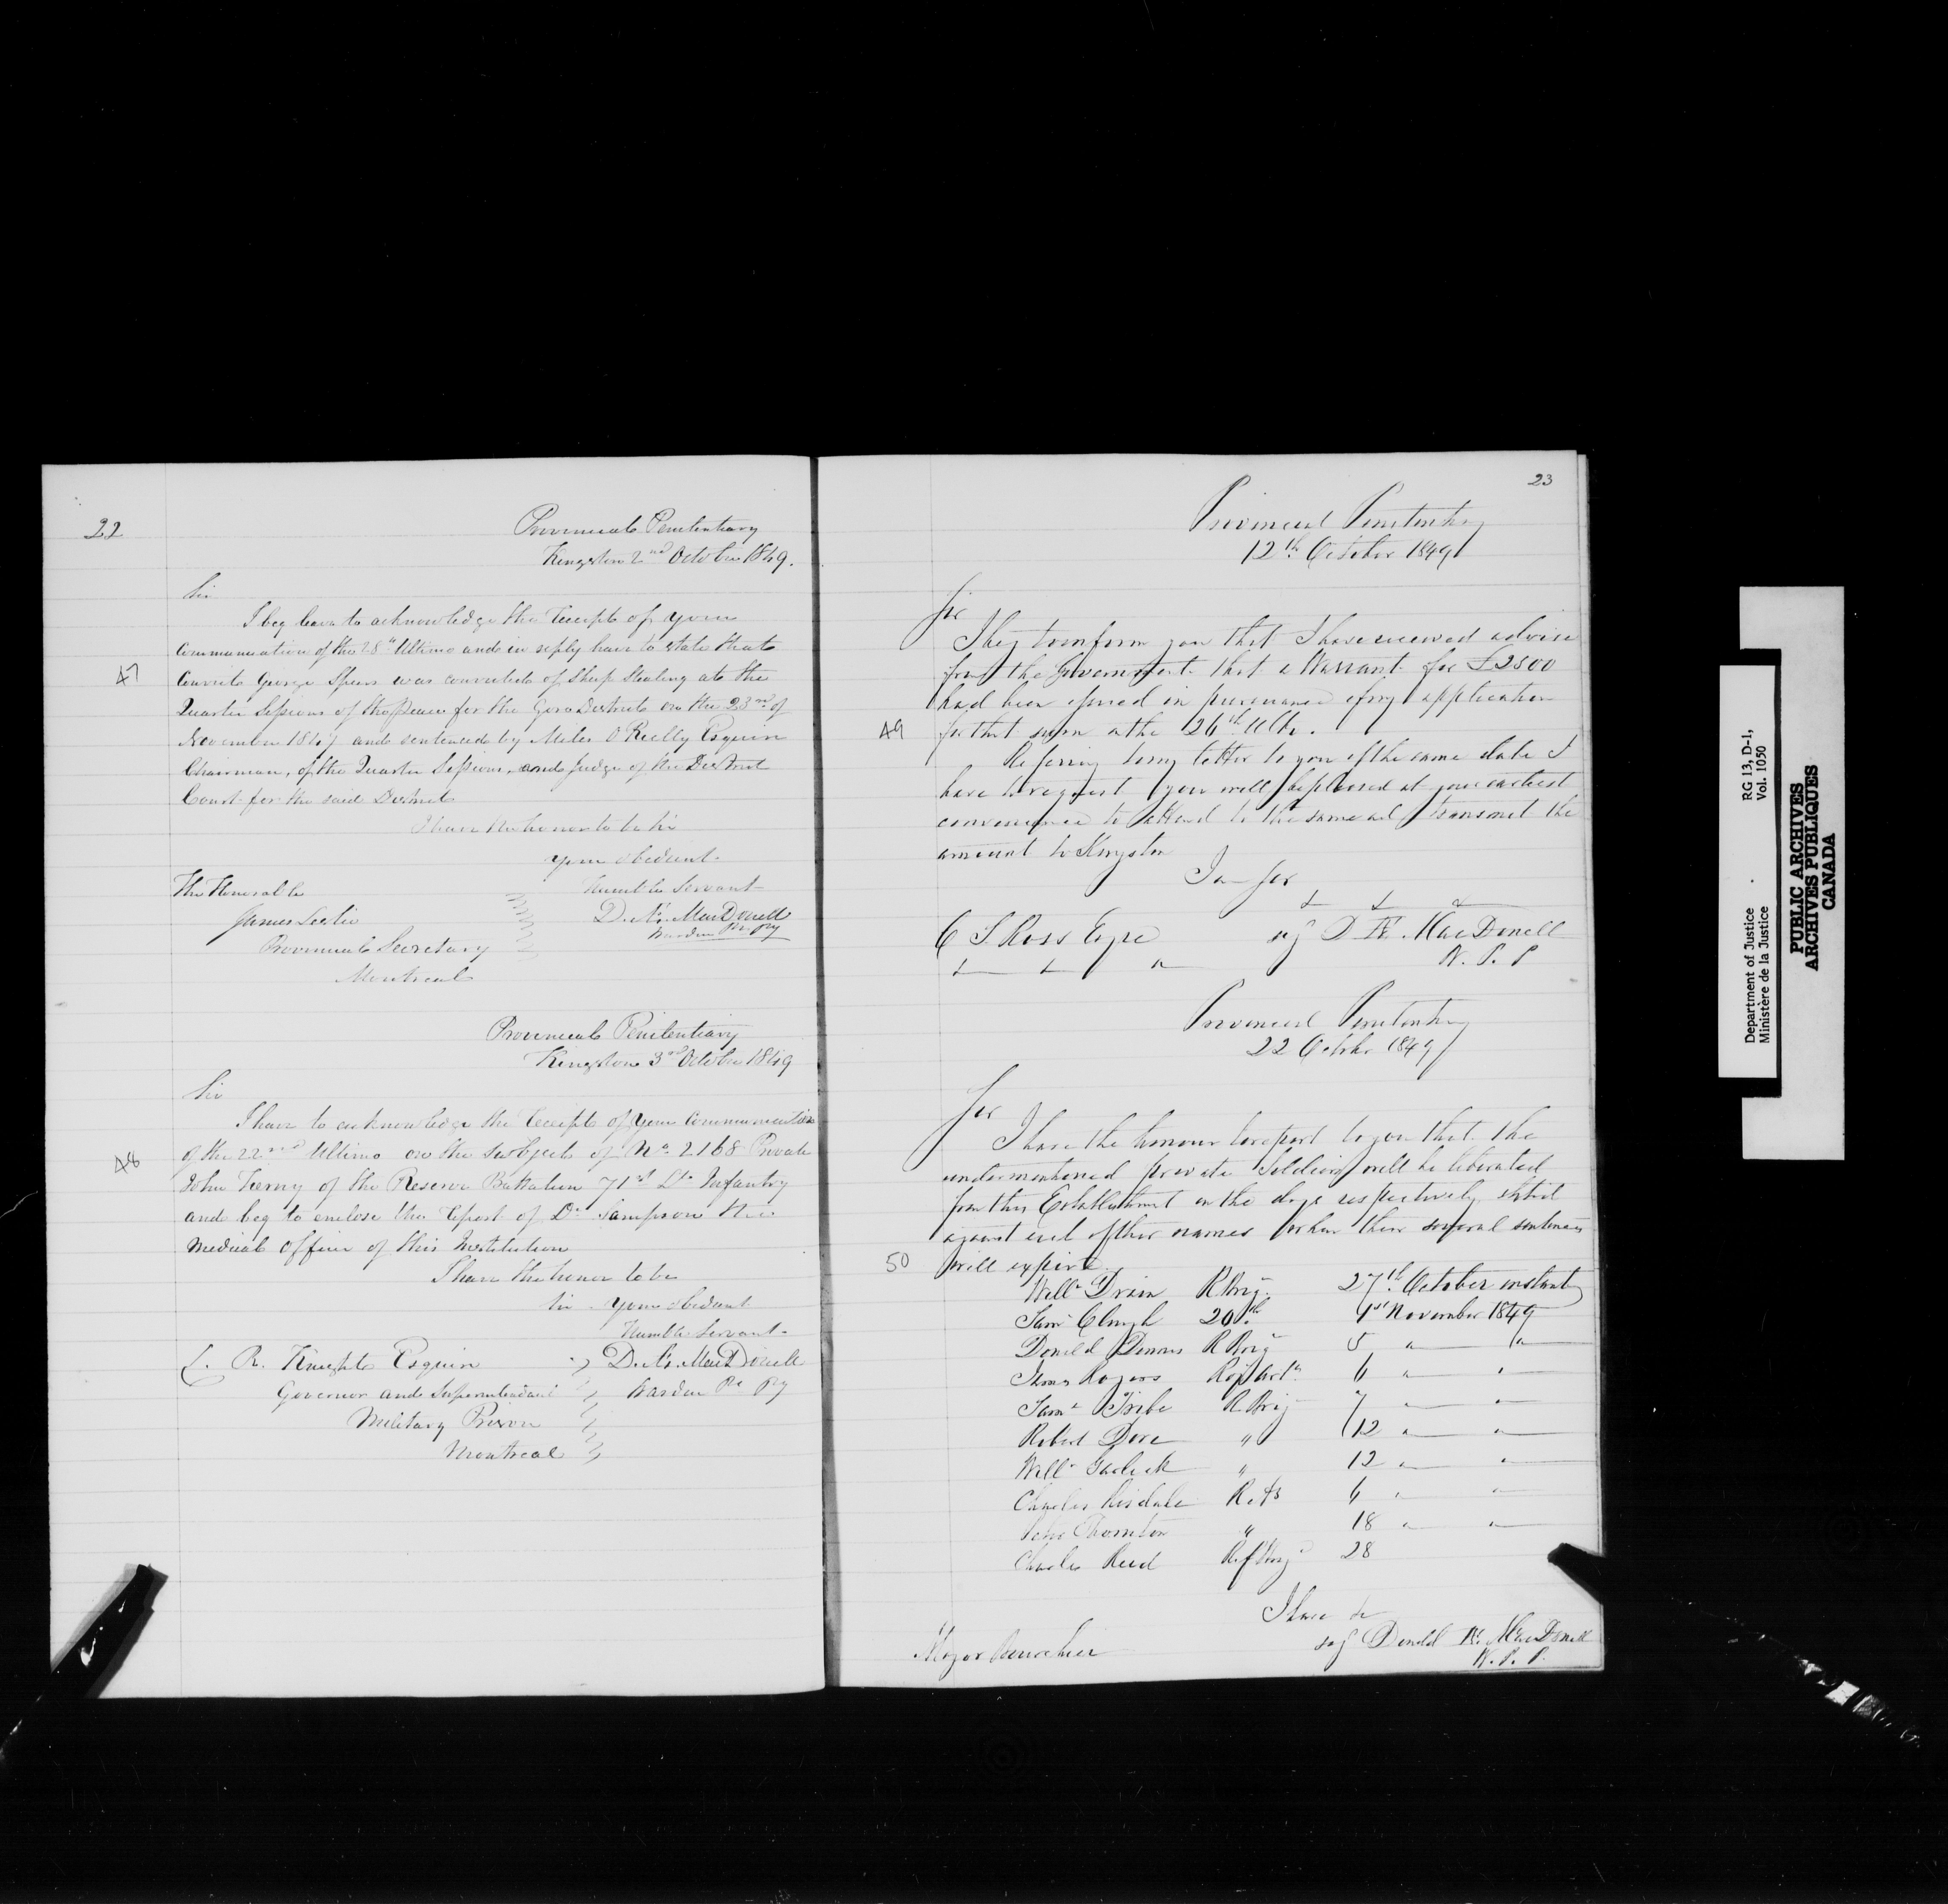 22
Provincial Penitentiary
Kingston 2nd October 1849.
Sir
I beg leave to acknowledge the Receipt of your
Communication of the 28th Ultimo and in reply have to state that
47
Convict George Spears was convicted of Sheep Stealing at the
Quarter Sessions of the Peace for the Gore District on the 23rd of
November 1847 and sentenced by Miles O'Reilly Esquire
Chairman, of the Quarter Sessions, and Judge of the District
Court for the said District
I have the honor to be Sir
your obedient
Humble Servant
The Honorable
James Leslie
D. Æ. MacDonell
Warden Pr. Py
Provincial Secretary
Montreal
Provincial Penitentiary
Kingston 3rd October 1849
Sir
I have to acknowledge the Receipt of your Communication
48
of the 22nd Ultimo on the Subject of No. 2168 Private
John Tierny of the Reserve Battalion 71st Lt. Infantry
and beg to enclose the Report of Dr. Sampson the
Medical Officer of this Institution
I have the honor to be
Sir your obedient
Humble Servant
R. Knight Esquire
D. Æ. MacDonell
Governor and Superintendent
Warden Pr. Py
Military Prison
Montreal
23
Provincial Penitentiary
12th October 1849
Sir
I beg to inform you that I have received advise
from the Government that a Warrant for £2500
had been issued in pursuance of my application
49
for that sum on the 26th Ulto.
Referring to my letter to you of the same date I
have to request you will be pleased at your earliest
convenience to attend to the same and transmit the
amount to Kingston
I am Sir
& & &
C S Ross Esqre
sig D Æ MacDonell
W. P. P
Provincial Penitentiary
22 October 1849
Sir
I have the honour to report to you that the
undermentioned private Soldiers will be liberated
from this Establishment on the days respectively stated
against each of their names when their several sentences
50
will expire
Willm Drain R Brig. 27th October instant
Saml Clough 20th 1st November 1849
Donald Dennis R Brig 5 " "
James Rogers Rl Art. 6 " "
Saml Tribe R. Brig 7 " "
Robert Dore " 12 " "
Willm Garlick " 12 " "
Charles Risdale 6 " "
John Thornton " 18 " "
Charles Reed Rif Brig 28
I have &c
sig Donald Æ. MacDonell
W. P. P.
Major Bourchier
Department of Justice
Ministère de la Justice
RG 13, D-1,
Vol. 1050
PUBLIC ARCHIVES
ARCHIVES PUBLIQUES
CANADA